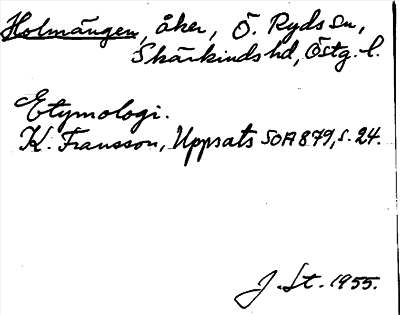 Holmängen, åker, Ö. Ryds sn,
Skärkinds hd, Östg. l.
Etymologi.
K. Fransson, Uppsats SOA 879, s. 24.
J. St. 1955.